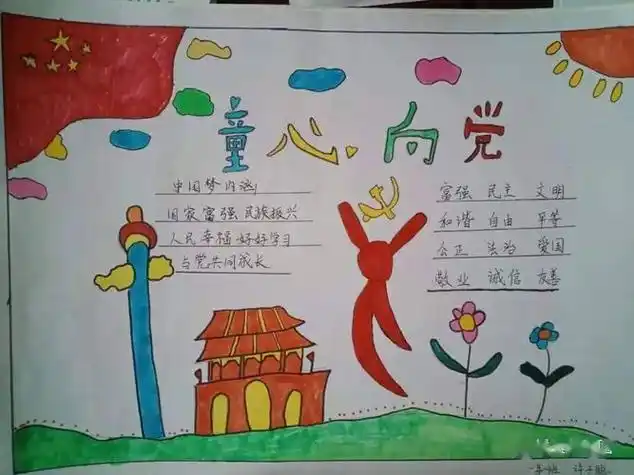 童心向党
中国梦内涵
国家富强 民族振兴
人民幸福 好好学习
与党共同成长
富强 民主 文明
和谐 自由 平等
公正 法治 爱国
敬业 诚信 友善